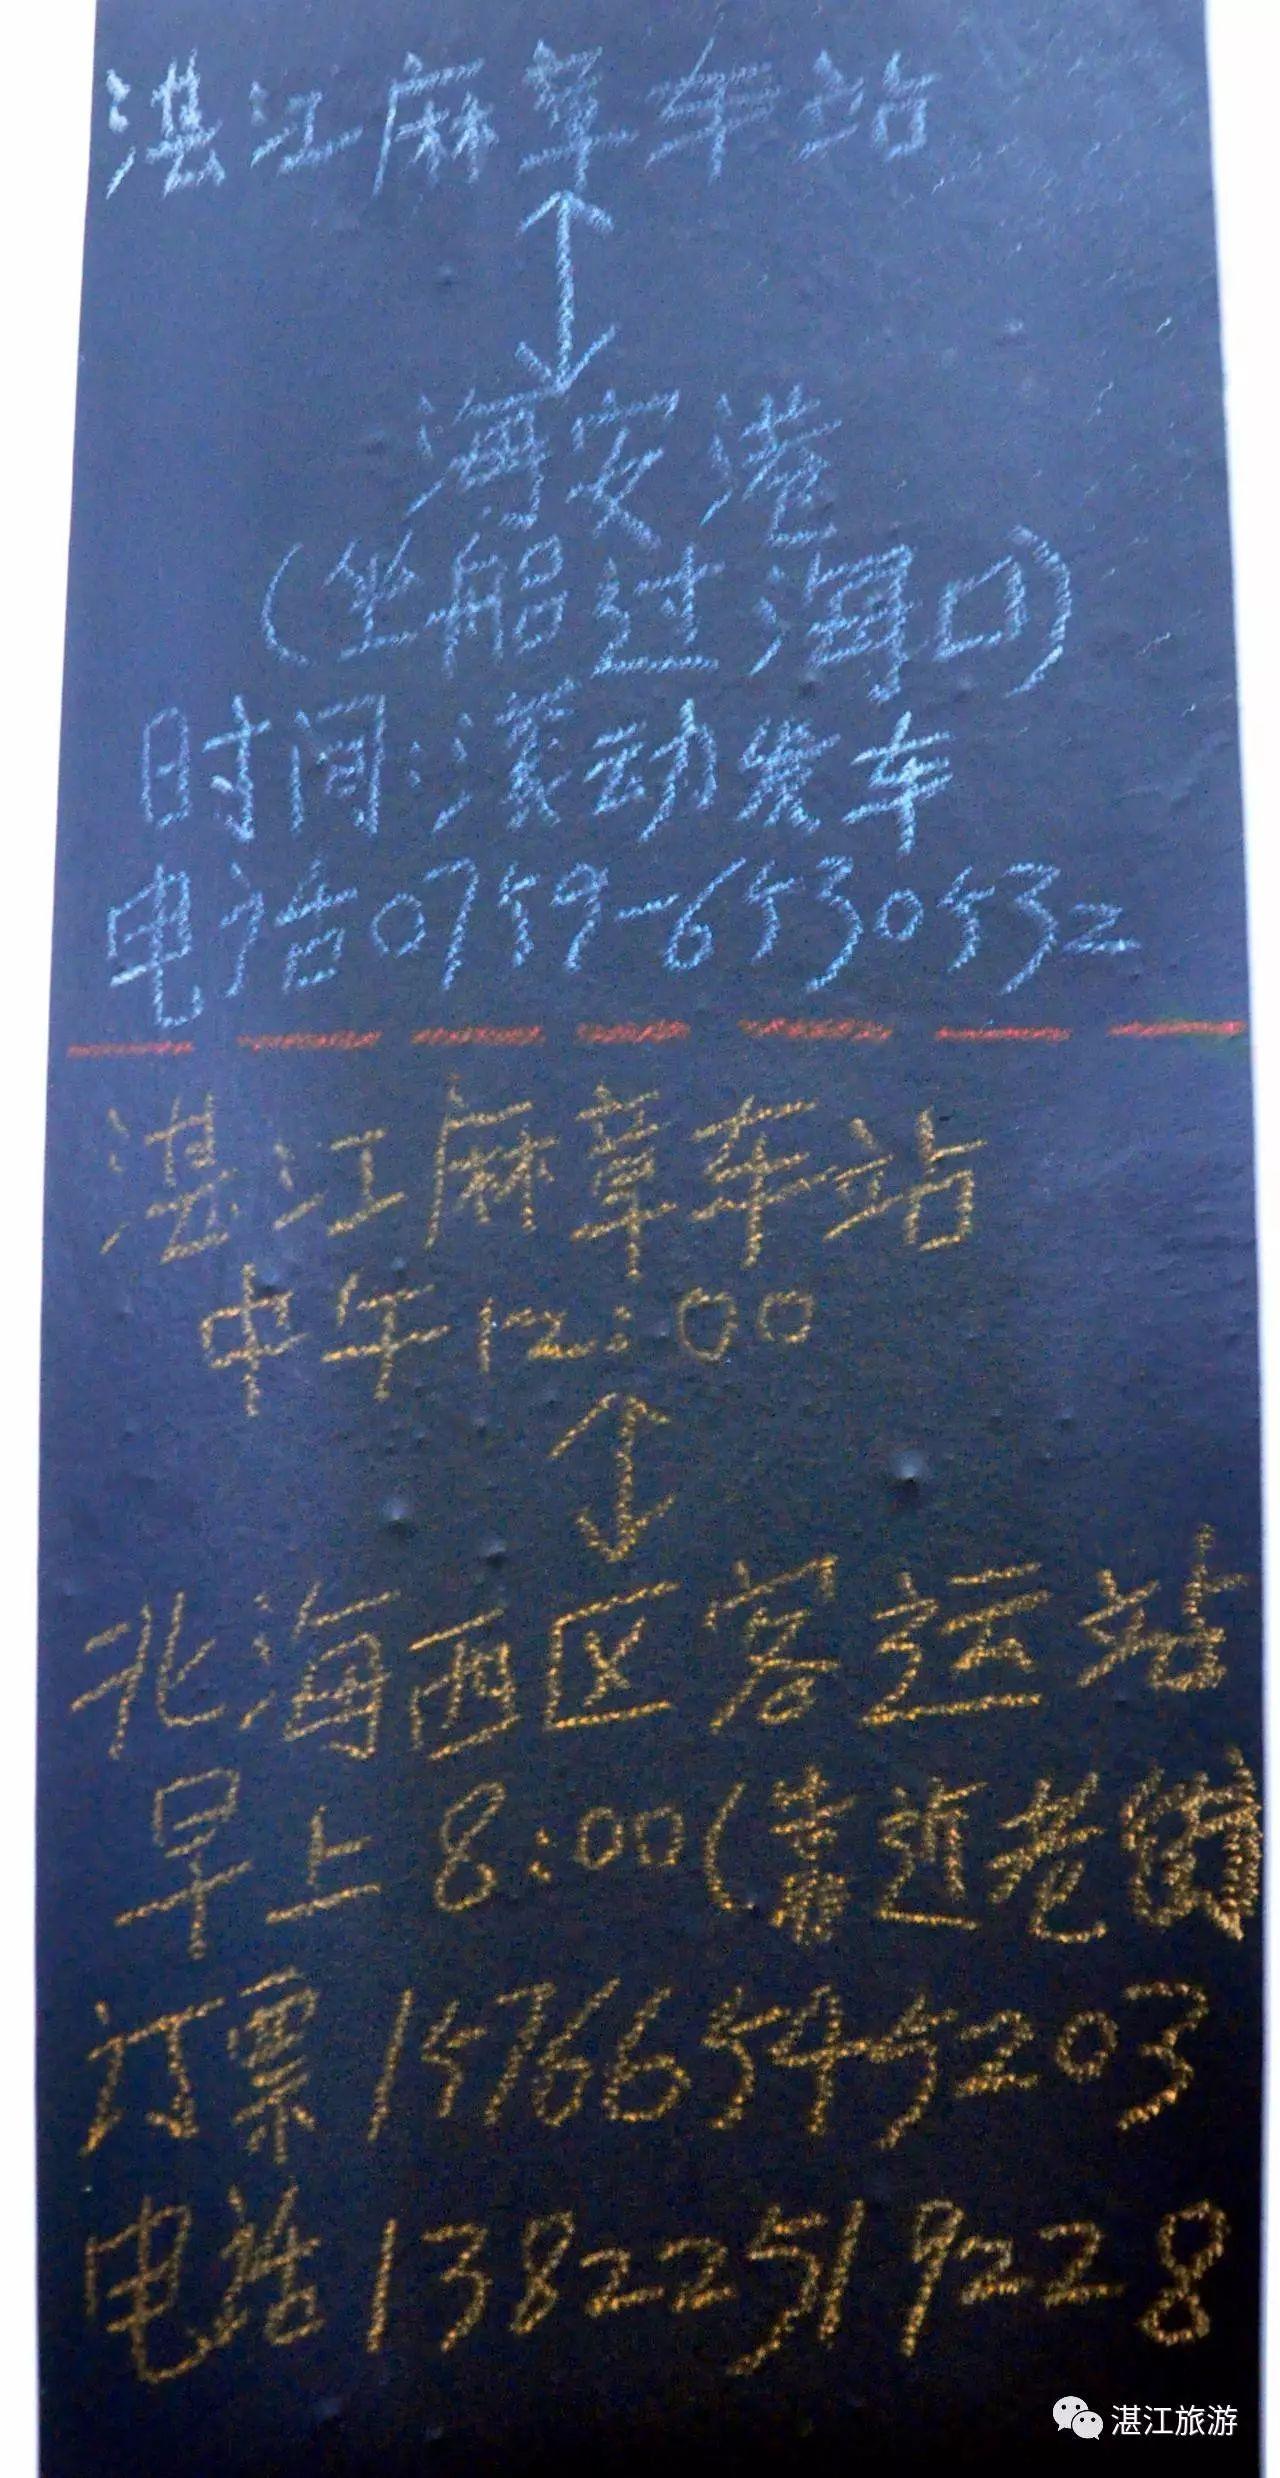 湛江麻章车站
海安港
(坐船过海口)
时间:滚动发车
电话0759-6530532
湛江麻章车站
中午12:00
北海西区客运站
早上8:00(靠近老
订票15766545203
电话13822519228
湛江旅游